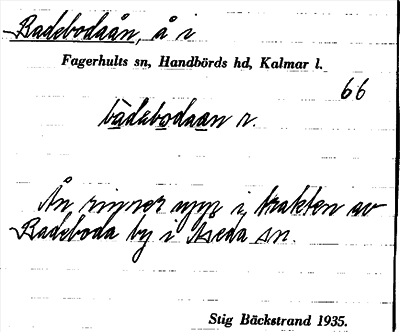 Badebodaån, å i
Fagerhults sn, Handbörds hd, Kalmar l.
66
bàdebodaan r.
Ån rinner upp i trakten av
Badeboda by i Åseda sn.
Stig Bäckstrand 1935.